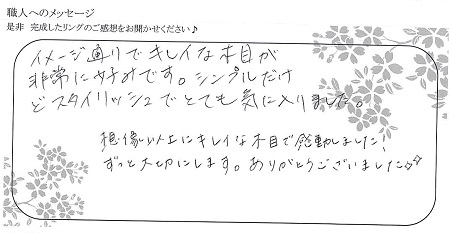 職人へのメッセージ
是非 完成したリングのご感想をお聞かせください♪
イメージ通りでキレイな木目が
非常に好みです。シンプルだけ
どスタイリッシュでとても気に入りました。
想像以上にキレイな木目で感動しました!
ずっと大切にします。ありがとうございました☆☆